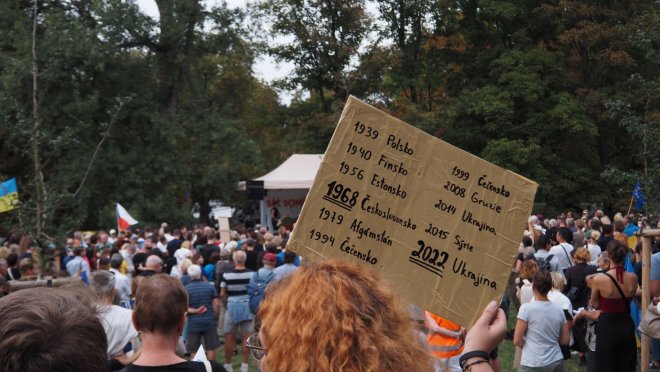 1939 Polsko
1940 Finsko
1956 Estonsko
1968 Československo
1979 Afgánistán
1994 Čečensko
1999 Čečensko
2008 Gruzie
2014 Ukrajina
2015 Sýrie
2022 Ukrajina